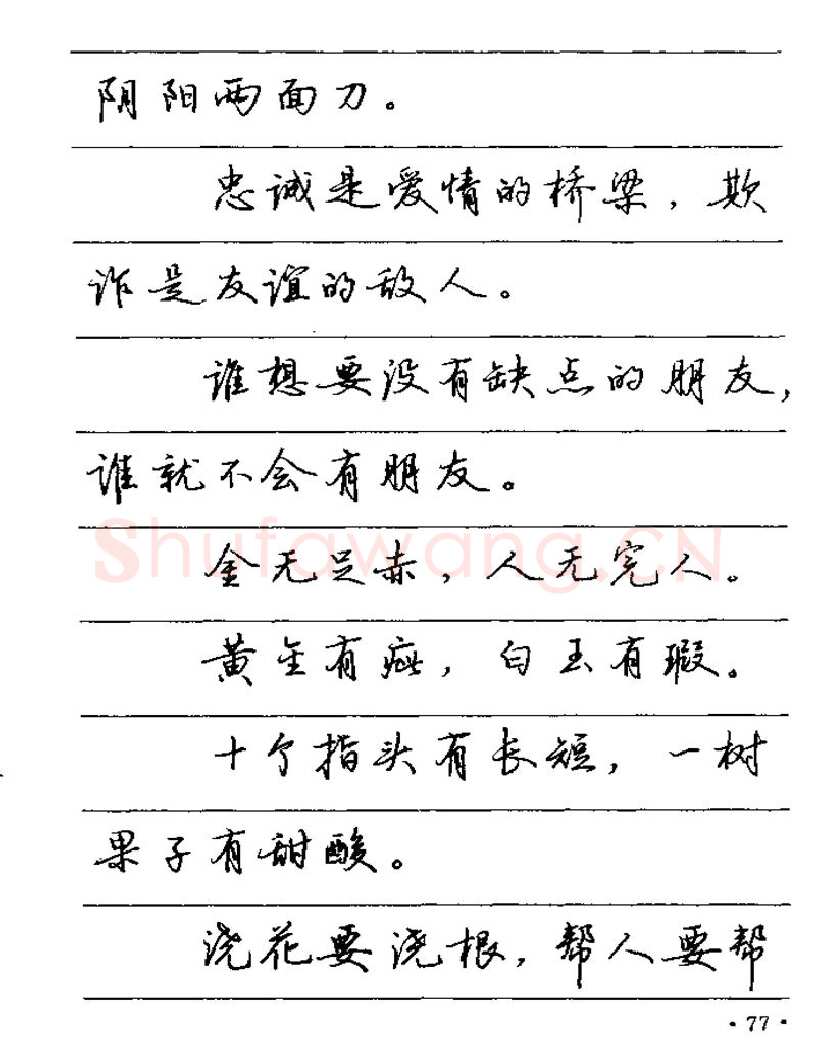 阴阳两面刀。
忠诚是爱情的桥梁，欺
诈是友谊的敌人。
谁想要没有缺点的朋友，
谁就不会有朋友。
Shufawang.CN
金无足赤，人无完人。
黄金有疵，白玉有瑕。
十个指头有长短，一树
果子有甜酸。
浇花要浇根，帮人要帮
·77·